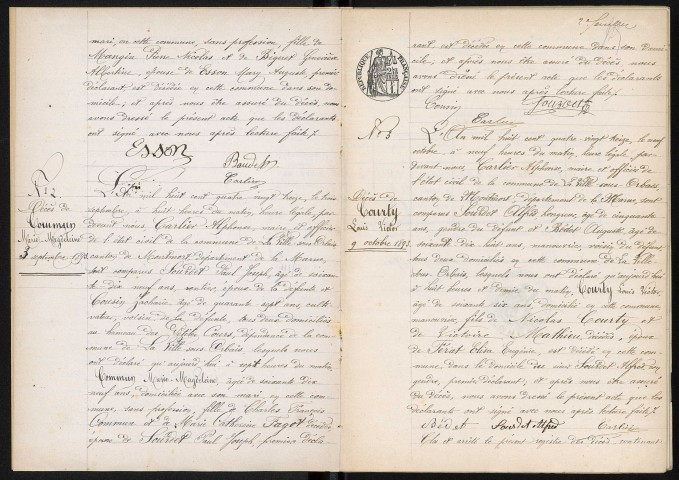 mari, en cette commune, sans profession, fille de
Mangin Pierre Nicolas et de Biguet Geneviève
Albertine, épouse de Esson Marc Auguste, premier
déclarant, est décédée en cette commune dans son do-
micile, et après nous être assuré du décès, nous
avons dressé le présent acte que les déclarants
ont signé avec nous après lecture faite.
Esson
Baudet
Cartier
N° 2
Décès de
Commun
Marie Magdeleine
3 septembre 1893
L'an mil huit cent quatre vingt treize, le trois
septembre, à huit heures du matin, heure légale, par-
devant nous Cartier Alphonse, maire et officier
de l'état civil de la commune de La Ville sous Orbais
canton de Montmort département de la Marne,
sont comparus Sourdet Paul Joseph, âgé de soixante
dix neuf ans, rentier, époux de la défunte et
Cousin Zacharie, âgé de quarante sept ans, culti-
vateur, voisin de la défunte, tous deux domiciliés
au hameau des Cours, dépendance de la com-
mune de La Ville sous Orbais lesquels nous
ont déclaré qu'aujourd'hui à sept heures du matin,
Commun Marie-Magdeleine, âgée de soixante dix
neuf ans, domiciliée avec son mari en cette com-
mune, sans profession, fille de Charles François
Commun et de Marie Catherine Jagot décédés,
épouse de Sourdet Paul Joseph, premier décla-
2e feuillet
RÉPUBLIQUE FRANÇAISE
rant, est décédée en cette commune dans son domi-
cile, et après nous être assuré du décès, nous
avons dressé le présent acte que les déclarants
ont signé avec nous après lecture faite.
Cousin
Sourdet
Cartier
N° 3
Décès de
Courty
Louis Victor
9 octobre 1893
L'An mil huit cent quatre vingt treize, le neuf
octobre, à neuf heures du matin, heure légale, par-
devant nous Cartier Alphonse, maire et officier de
l'état civil de la commune de La Ville sous Orbais,
canton de Montmort département de la Marne, sont
comparus Sourdet Alfred, âgé de cinquante
ans, gendre du défunt et Bédet Auguste, âgé de
soixante dix huit ans, manouvrier, voisin du défunt,
tous deux domiciliés en cette commune de La Ville
sous Orbais, lesquels nous ont déclaré qu'aujourd'hui
à huit heures et demie du matin, Courty Louis Victor,
âgé de soixante six ans, domicilié en cette commune
manouvrier, fils de Nicolas Courty et
de Victoire Mathieu, décédés, époux
de Férat Elisa Eugénie, est décédé en cette com-
mune, dans le domicile du sieur Sourdet Alfred son
gendre, premier déclarant, et après nous être assuré
du décès, nous avons dressé le présent acte que les
déclarants ont signé avec nous après lecture faite.
Bédet Sourdet Alfred Cartier
Clos et arrêté le présent registre des décès contenant